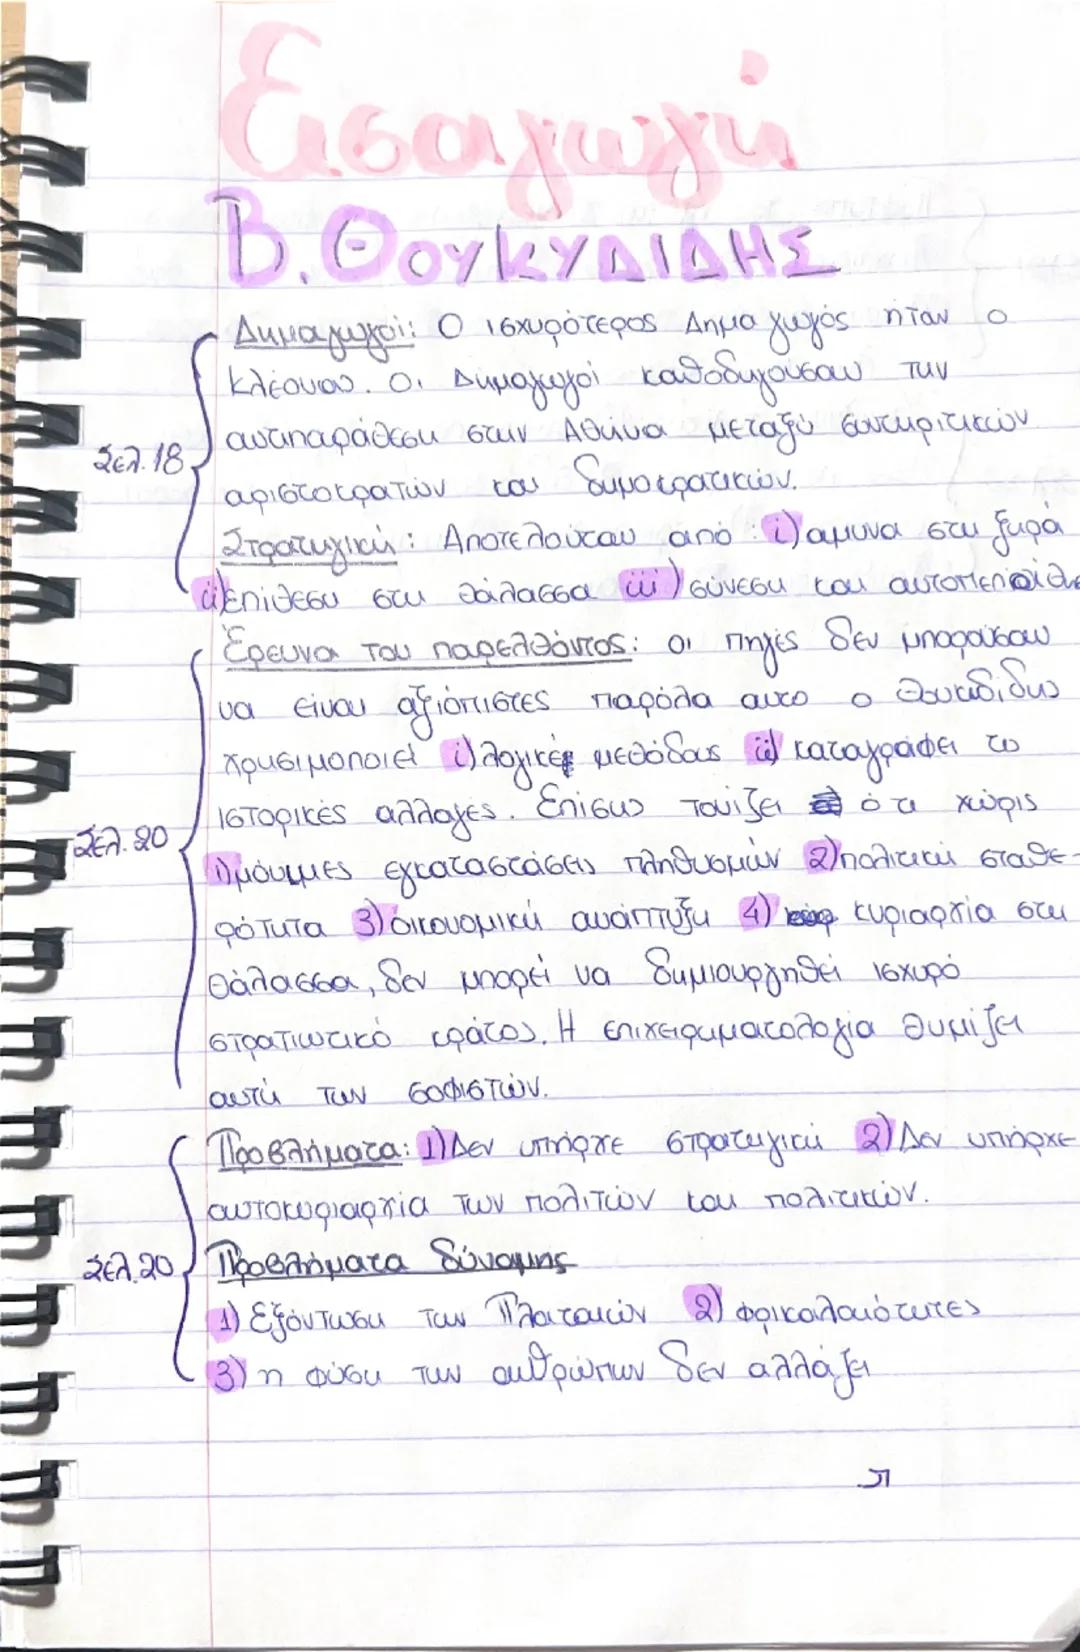 Εισαγωγή
Β. ΘΟΥΚΥΔΙΔΗΣ
Δημαγωγοί: Ο ισχυρότερος Δημαγωγός ήταν ο
Κλέωνας. Οι Δημαγωγοί καθοδηγούσαν την
αντιπαράθεση στην Αθήνα μεταξύ συντηριτικών
Σελ. 18
αριστοκρατών και δημοκρατικών.
Στρατηγική: Αποτελούταν από: i) αμυνα στη ξηρά
ii) επίθεση στη θάλασσα iii) σύνεση και αυτοπεποίθη
Έρευνα του παρελθόντος: οι πηγές δεν μπορούσαν
να είναι αξιόπιστες παρόλα αυτο ο Θουκιδίδης
χρησιμοποιεί i) λογικές μεθόδους ii) καταγράφει το
ιστορικές αλλαγές. Επίσης τονίζει ότι χώρις
Σελ. 20
1) μόνιμες εγκαταστάσεις πληθυσμών 2) πολιτική σταθε-
ρότητα 3) οικονομική ανάπτυξη 4) κυριαρχία στη
θάλασσα, δεν μπορεί να δημιουργηθεί ισχυρό
στρατιωτικό κράτος. Η επιχειρηματολογία θυμίζει
αυτή των σοφιστών.
Προβλήματα: 1) Δεν υπήρχε στρατηγική 2) Δεν υπήρχε
αυτοκυριαρχία των πολιτών και πολιτικών.
Σελ. 20
Προβλήματα δύναμης
1) Εξόντωση των Πλαταιών 2) φρικαλαιότητες
3) η φύση των ανθρώπων δεν αλλάζει